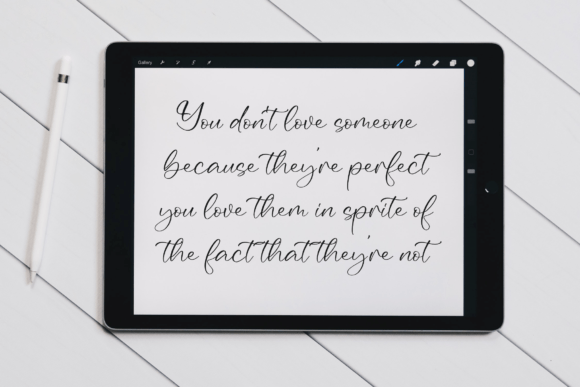 Gallery
You don't love someone
because they're perfect
you love them in sprite of
the fact that they're not